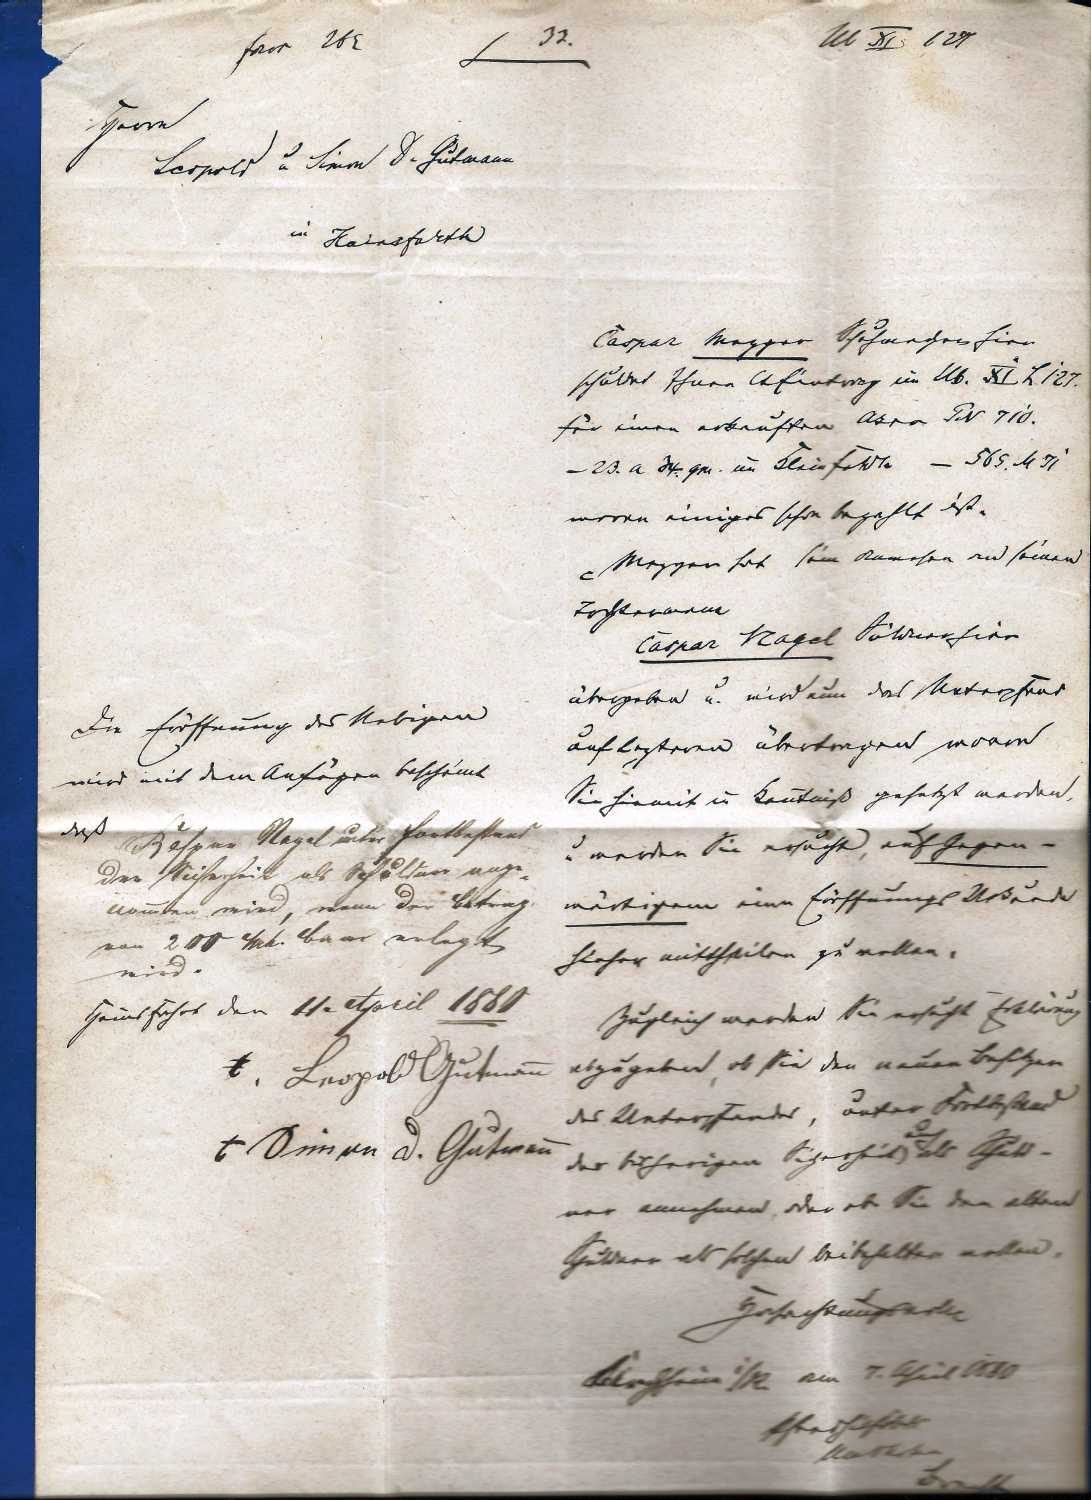 32.
Ub XI 127
Herrn
Leopold u Simon D. Gutmann
in Hainsfarth
Caspar Mayger hier
schuldet Ihnen im Ub. XI S 127.
für einen erkauften Aker PN 710.
– 23. a 34. qm. in Kleinfeldle – 565. M 71
woran einiges schon bezahlt ist.
Mayger hat sein Anwesen an seinen
Tochtermann
Caspar Nagel Söldner hier
übergeben u. wird nun das Unterpfand
auf Lezteren übertragen wovon
Sie hiemit in Kentniß gesetzt werden,
u werden Sie ersucht, auf Gegen-
wärtigem eine Eröffnungs Urkunde
hieher mittheilen zu wollen.
Zugleich werden Sie ersucht Erklärung
abzugeben, ob Sie den neuen Besitzer
des Unterpfandes, unter Fortbestand
der bisherigen Sicherheit auch als Schuld-
ner annehmen, oder ob Sie den alten
Schuldner als solchen beibehalten wollen.
Hochachtungsvollst
am 7. April 1880
Die Eröffnung des Nebigen
wird mit dem Anfügen bescheint
daß Kaspar Nagel unter Fortbestand
der Sicherheit als Schuldner ange-
nommen wird, wenn der Betrag
von 200 Mk. baar erlegt
wird.
Hainsfahrt den 11. April 1880
t. Leopold Gutmann
t Simon D. Gutmann